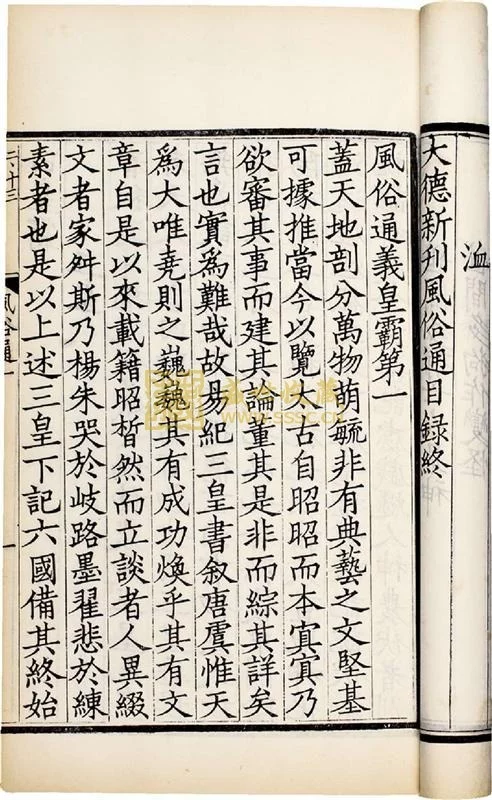 洫
大德新刊風俗通目録終
風俗通義皇霸第一
蓋天地剖分萬物萌毓非有典藝之文堅基
可據推當今以覽太古自昭昭而本㝠㝠乃
欲審其事而建其論董其是非而綜其詳矣
言也實爲難哉故易紀三皇書叙唐虞惟天
爲大唯堯則之巍巍其有成功煥乎其有文
章自是以來載籍昭晳然而立談者人異綴
文者家舛斯乃楊朱哭於歧路墨翟悲於練
素者也是以上述三皇下記六國備其終始
風俗通一
盛世收藏
www.sssc.cn